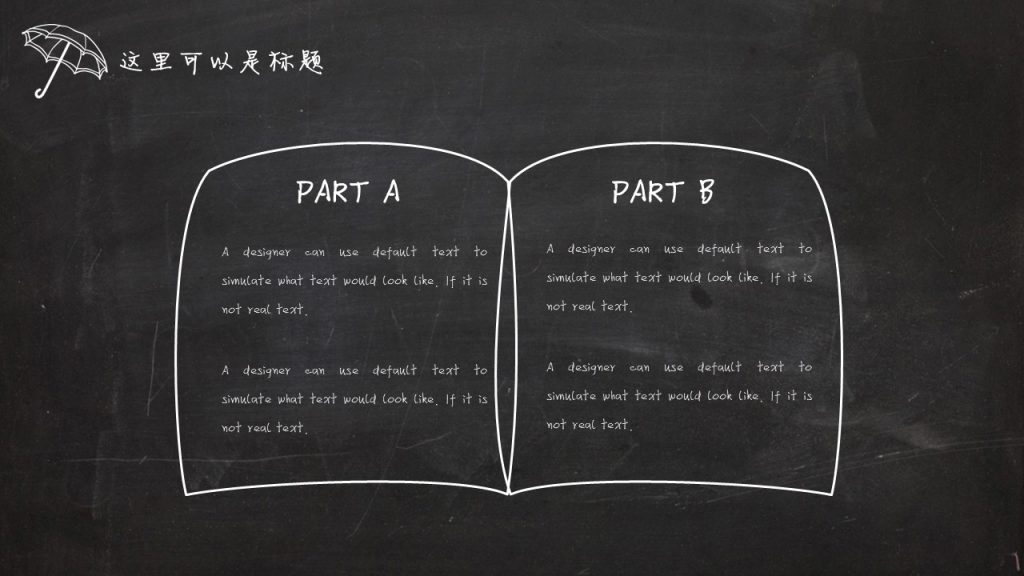 这里可以是标题
PART A
A designer can use default text to
simulate what text would look like. If it is
not real text.
A designer can use default text to
simulate what text would look like. If it is
not real text.
PART B
A designer can use default text to
simulate what text would look like. If it is
not real text.
A designer can use default text to
simulate what text would look like. If it is
not real text.